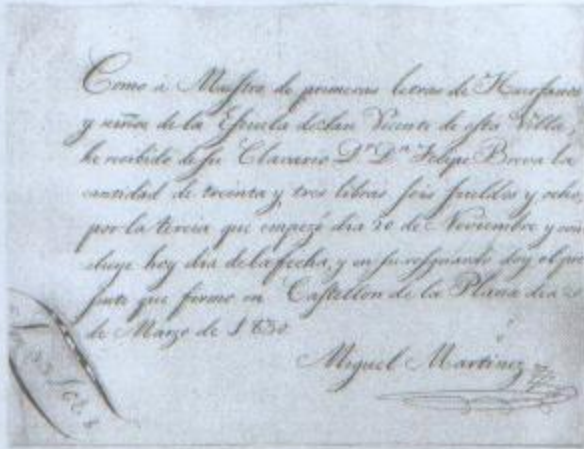 Como à Maestro de primeras letras de Huerfanos
y niños de la Escuela de San Vicente de esta Villa,
he recibido de su Clavario Dn Dn Felipe Breva la
cantidad de treinta y tres libras seis sueldos y ocho
por la tercia que empezó dia 20 de Noviembre y con
cluye hoy dia de la fecha, y en su resguardo doy el pre
sente que firmo en Castellon de la Plana dia
de Marzo de 1830
Miguel Martinez